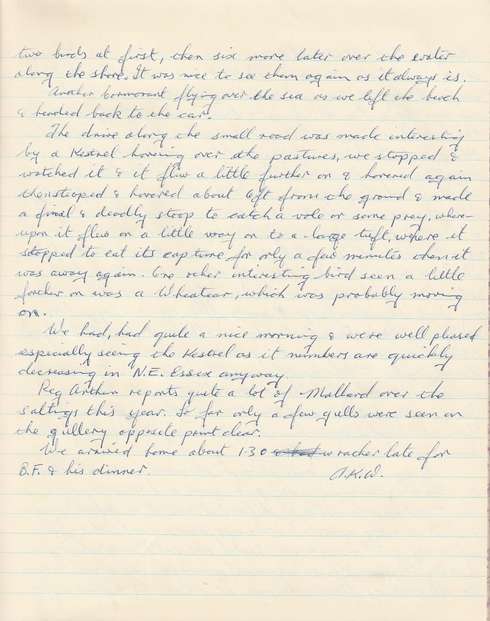 two birds at first, then six more later over the water
along the shore. It was nice to see them again as it always is.
Another Cormorant flying over the sea as we left the beach
& headed back to the car.
The drive along the small road was made interesting
by a Kestrel hovering over the pastures, we stopped &
watched it & it flew a little further on & hovered again
then stooped & hovered about 6ft from the ground & made
a final & deadly stoop to catch a vole or some prey, where-
upon it flew on a little way on to a large tuft, where it
stopped to eat its capture for only a few minutes then it
was away again. One other interesting bird seen a little
further on was a Wheatear, which was probably moving
on.
We had, had quite a nice morning & were well pleased
especially seeing the Kestrel as it numbers are quickly
decreasing in N.E. Essex anyway.
Reg Arthur reports quite a lot of Mallard over the
saltings this year. So far only a few gulls were seen on
the gullery opposite point clear.
We arrived home about 1-30 rather late for
B.F. & his dinner. A.K.W.